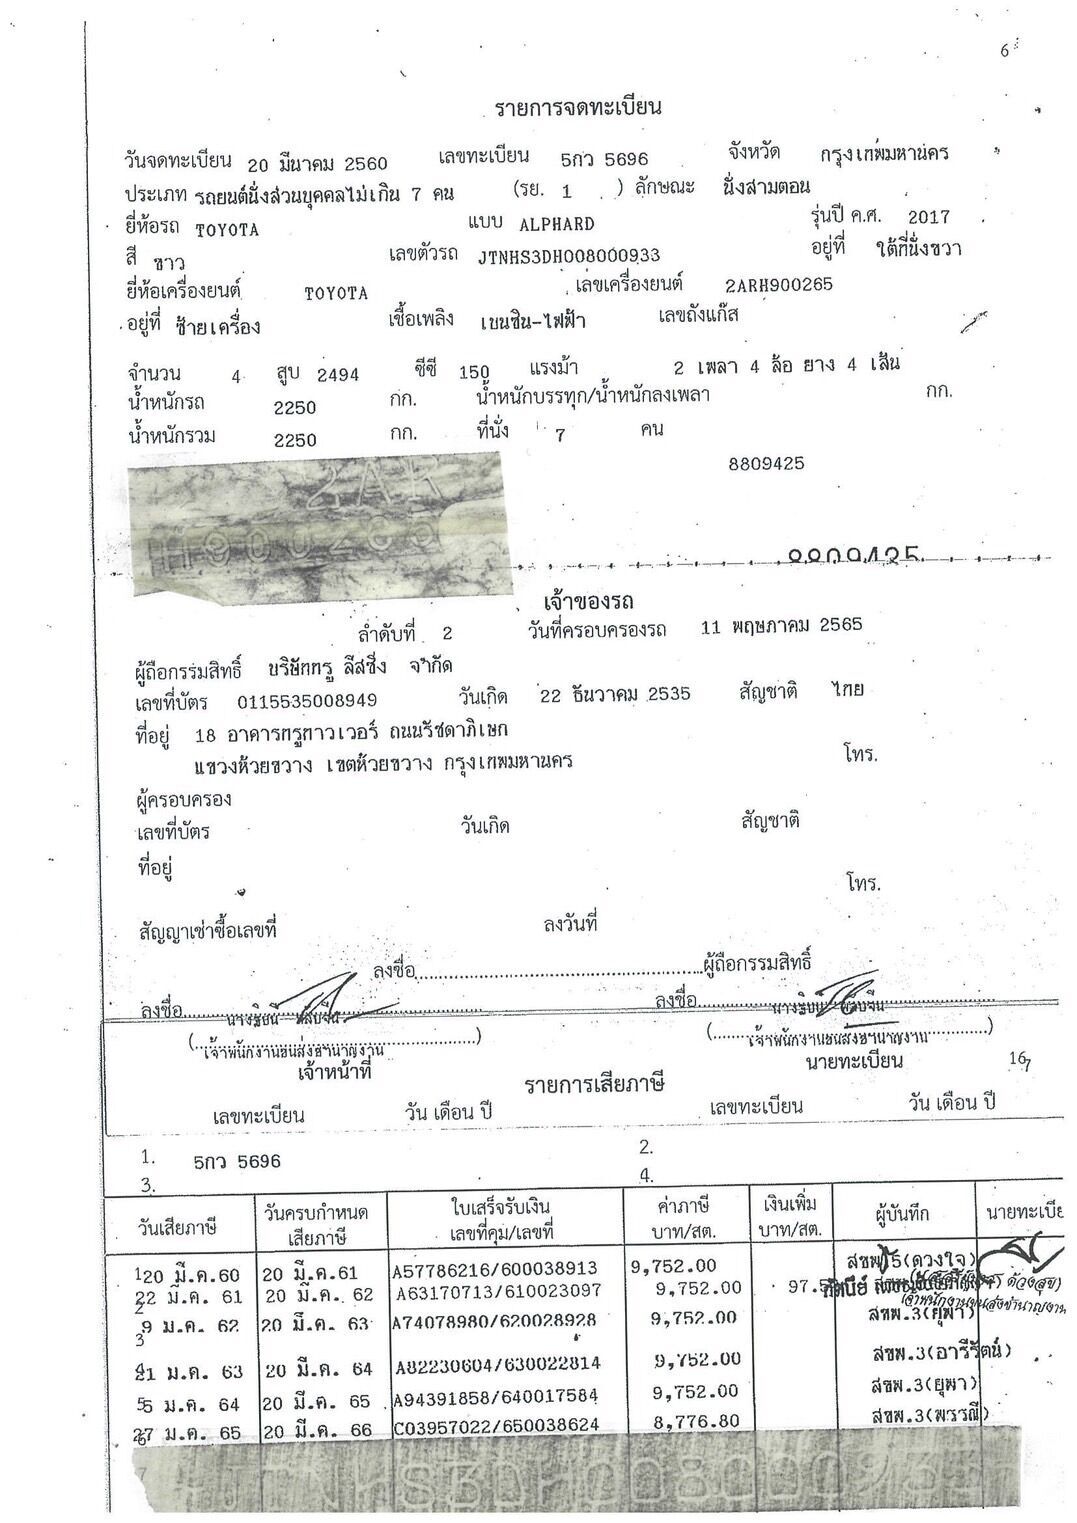 6
รายการจดทะเบียน
วันจดทะเบียน 20 มีนาคม 2560 เลขทะเบียน 5กว 5696 จังหวัด กรุงเทพมหานคร
ประเภท รถยนต์นั่งส่วนบุคคลไม่เกิน 7 คน (รย. 1 ) ลักษณะ นั่งสามตอน
ยี่ห้อรถ TOYOTA แบบ ALPHARD รุ่นปี ค.ศ. 2017
สี ขาว เลขตัวรถ JTNHS3DH008000933 อยู่ที่ ใต้ที่นั่งขวา
ยี่ห้อเครื่องยนต์ TOYOTA เลขเครื่องยนต์ 2ARH900265
อยู่ที่ ซ้ายเครื่อง เชื้อเพลิง เบนซิน-ไฟฟ้า เลขถังแก๊ส
จำนวน 4 สูบ 2494 ซีซี 150 แรงม้า 2 เพลา 4 ล้อ ยาง 4 เส้น
น้ำหนักรถ 2250 กก. น้ำหนักบรรทุก/น้ำหนักลงเพลา กก.
น้ำหนักรวม 2250 กก. ที่นั่ง 7 คน
8809425
2AR
H900265
8809425
เจ้าของรถ
ลำดับที่ 2 วันที่ครอบครองรถ 11 พฤษภาคม 2565
ผู้ถือกรรมสิทธิ์ บริษัททรู ลีสซิ่ง จำกัด
เลขที่บัตร 0115535008949 วันเกิด 22 ธันวาคม 2535 สัญชาติ ไทย
ที่อยู่ 18 อาคารทรูทาวเวอร์ ถนนรัชดาภิเษก
แขวงห้วยขวาง เขตห้วยขวาง กรุงเทพมหานคร โทร.
ผู้ครอบครอง
เลขที่บัตร วันเกิด สัญชาติ
ที่อยู่
โทร.
สัญญาเช่าซื้อเลขที่ ลงวันที่
ลงชื่อ ผู้ถือกรรมสิทธิ์
ลงชื่อ ลงชื่อ
เจ้าพนักงานขนส่งชำนาญงาน เจ้าพนักงานขนส่งชำนาญงาน
เจ้าหน้าที่ นายทะเบียน
16
รายการเสียภาษี
เลขทะเบียน วัน เดือน ปี เลขทะเบียน วัน เดือน ปี
1. 5กว 5696 2.
3. 4.
วันเสียภาษี วันครบกำหนดเสียภาษี ใบเสร็จรับเงิน เลขที่คุม/เลขที่ ค่าภาษี บาท/สต. เงินเพิ่ม บาท/สต. ผู้บันทึก นายทะเบีย
1 20 มี.ค.60 20 มี.ค.61 A57786216/600038913 9,752.00 สขพ.5(ดวงใจ)
2 22 มี.ค. 61 20 มี.ค. 62 A63170713/610023097 9,752.00 97.5
3 9 ม.ค. 62 20 มี.ค. 63 A74078980/620028928 9,752.00 สขพ.3(ยุพา)
4 21 ม.ค. 63 20 มี.ค. 64 A82230604/630022814 9,752.00 สขพ.3(อารีรัตน์)
5 5 ม.ค. 64 20 มี.ค. 65 A94391858/640017584 9,752.00 สขพ.3(ยุพา)
6 27 ม.ค. 65 20 มี.ค. 66 C03957022/650038624 8,776.80 สขพ.3(พรรณี)
7
JTNHS3DH008000933